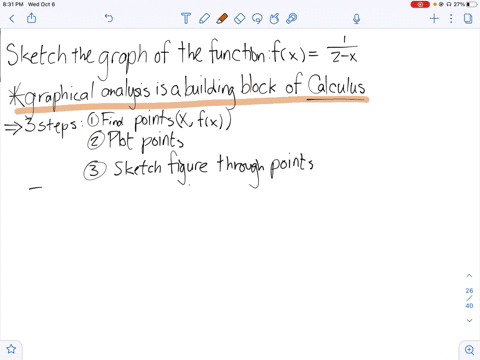 8:31 PM Wed Oct 6
27%
Sketch the graph of the function: f(x) = 1/(2-x)
*graphical analysis is a building block of Calculus
⇒ 3 steps: ① Find points (x, f(x))
② Plot points
③ Sketch figure through points
26
/
40